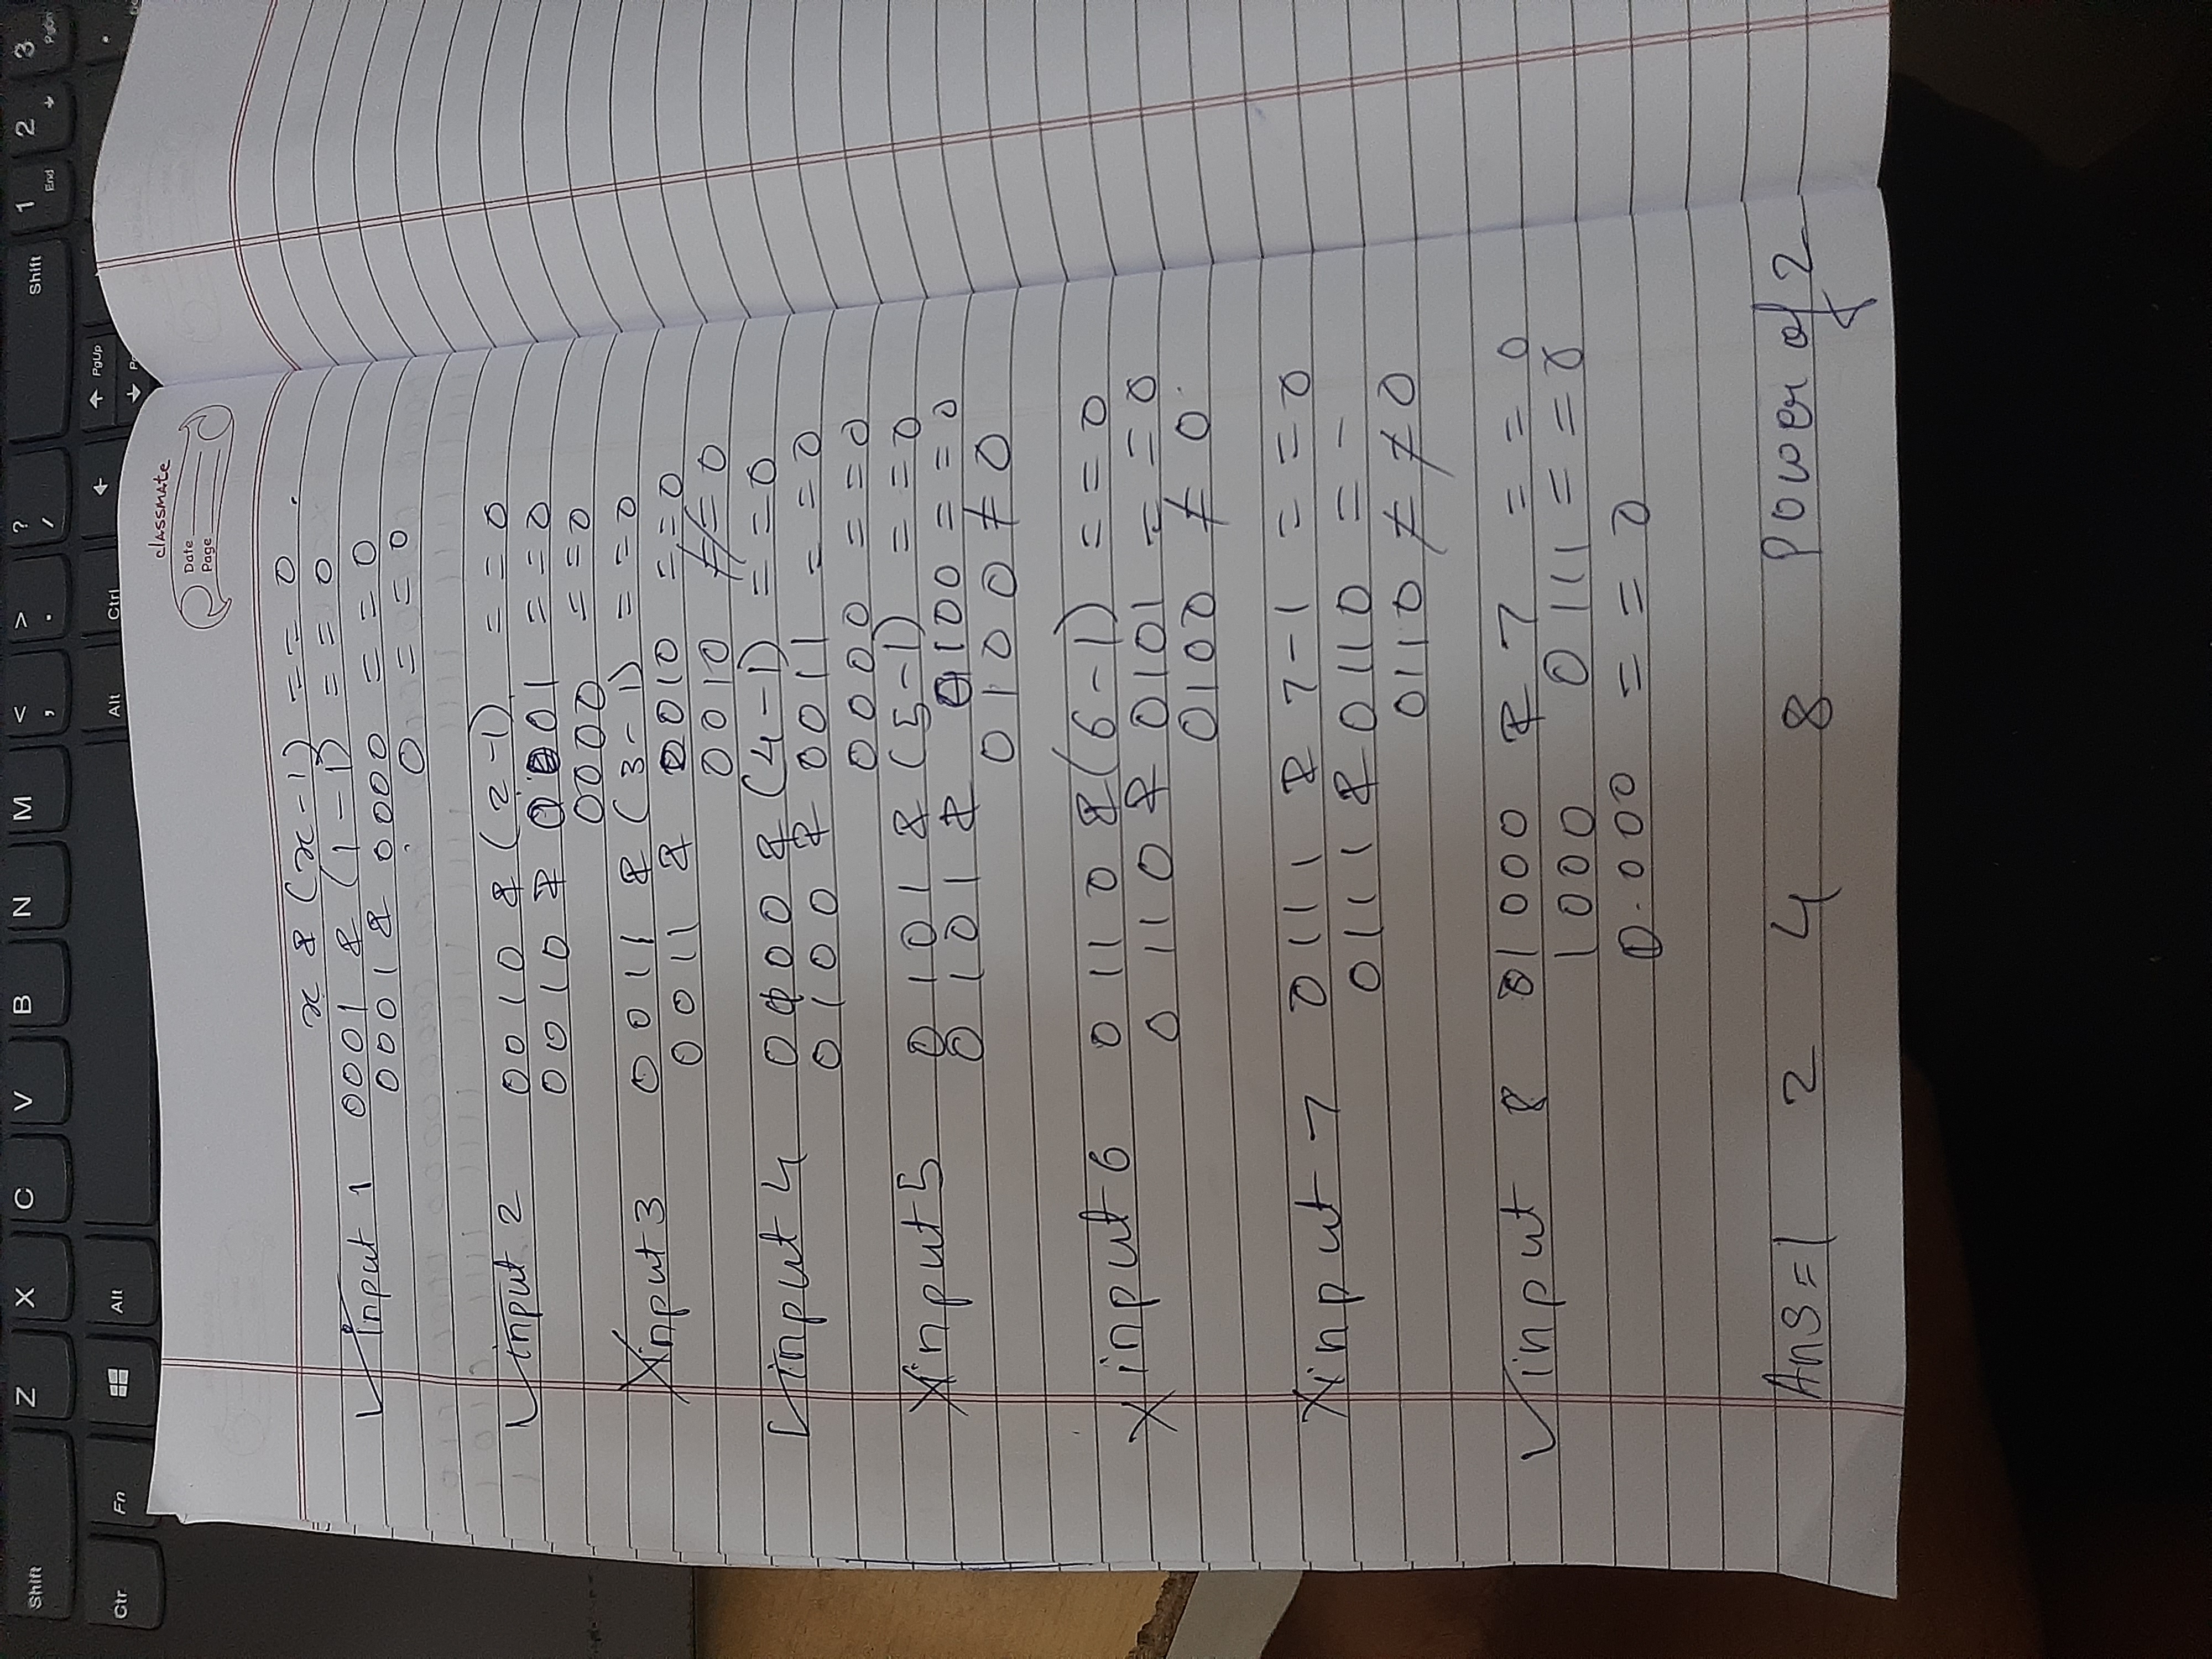 Shift Z X C V B N M < , > . ? / Shift 1 End 2 3 PgDn
Ctr Fn Alt Alt Ctrl PgUp
classmate
Date
Page
x & (x-1) == 0
input 1 0001 & (1-1) == 0
0001 & 0000 == 0
0 == 0
input 2 0010 & (2-1) == 0
0010 & 0001 == 0
0000 == 0
input 3 0011 & (3-1) == 0
0011 & 0010 == 0
0010 ≠= 0
input 4 0100 & (4-1) == 0
0100 & 0011 == 0
0000 == 0
input 5 0101 & (5-1) == 0
0101 & 0100 == 0
0100 ≠ 0
input 6 0110 & (6-1) == 0
0110 & 0101 == 0
0100 ≠ 0
input 7 0111 & 7-1 == 0
0111 & 0110 = -
0110 ≠ ≠ 0
input 8 01000 & 7 == 0
1000 0111 == 0
0.000 == 0
Ans = 1 2 4 8 Power of 2